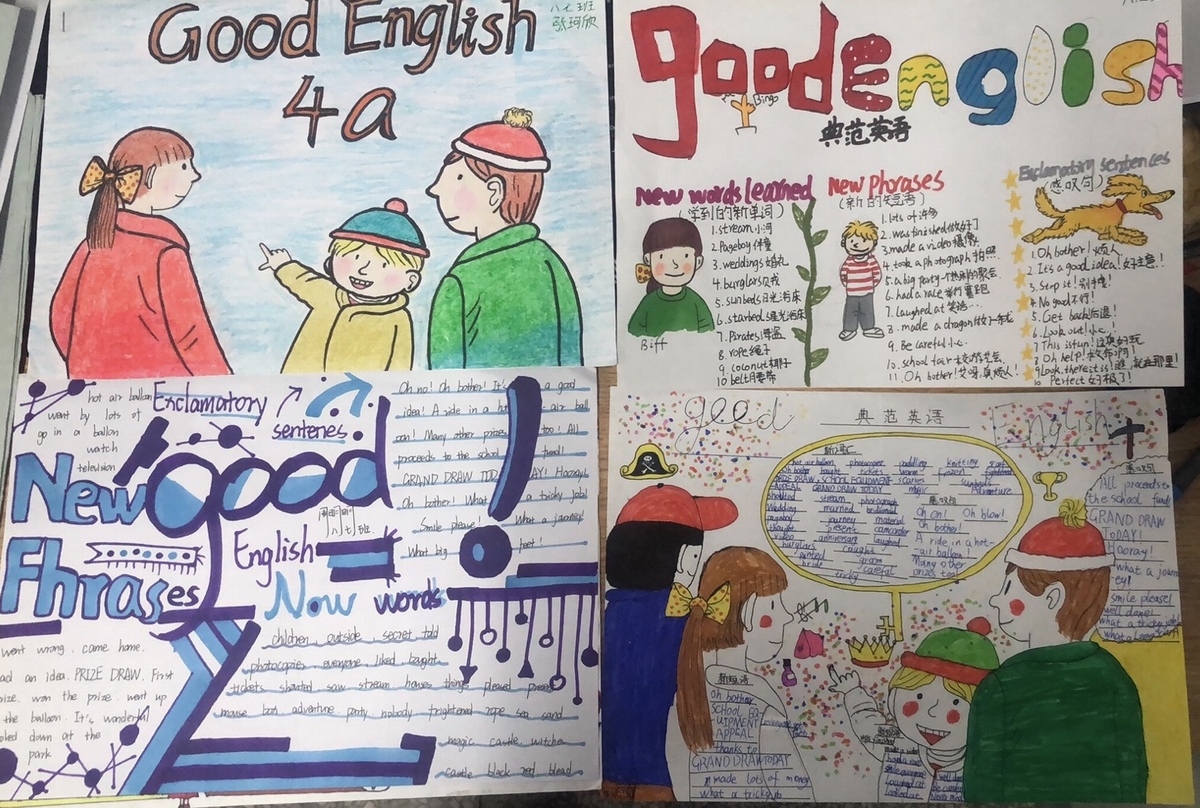 Good English
4a
八七班
张珂欣
good english
Bingo
典范英语
New words learned
(学到的新单词)
1. stream 小河
2. Pageboy 伴童
3. weddings 婚礼
4. burglars 窃贼
5. sunbeds 日光浴床
7. Pirates 海盗
8. rope 绳子
9. coconut 椰子
10 belt 腰带
Biff
New Phrases
(新的短语)
1. lots of 许多
2. was finished 做好了
3. made a video 摄像
4. took a photograph 拍照
5. a big party 一个热闹的聚会
6. had a race 举行赛跑
7. laughed at 笑话...
8. made a dragon 做了一条龙
9. Be careful 小心
10. school fair
11. Oh bother! 哎呀,真烦人!
Exclamatory sentences
(感叹句)
1. Oh bother! 烦人
2. It's a good idea! 好主意!
3. Stop it! 别才!
4. No good 不行!
5. Get back 后退!
6. Look out 小心!
7. This is fun! 这真好玩
8. Oh help! 救命啊!
9. Look, there it is! 就在那里!
10 Perfect 好极了!
hot air ballon
went by lots of
go in a ballon
watch
television
Exclamatory
sentenes
New
Fhrases
good
English
八七班
Now words
Oh no! Oh bother! It's a good
idea! A ride in a air ball
oon! Many other prizes too! All
proceeds to the school fund!
GRAND DRAW TODAY! Hooray!
Oh bother! What a tricky job!
Smile please! What a journey!
What big feet!
went wrong. came home.
ad an idea. PRIZE DRAW. First
rize. won the prize. went up
the balloon. It's wonderful
oled down at the
park
children outside secret told
photocopies everyone liked bought
tickets shouted saw stream houses things pleased
mouse adventure party nobody frightened rope sea sand
magic castle witches
castle black red blead
good 典范英语 English
新词汇
hot air balloon photocopier paddling knitting
tickets worm frozen
PRIZE DRAW SCHOOL EQUIPMENT scarves sunbeds
APPEAL GRAND DRAW TODAY magic Adventure
shouted stream photograph
Wedding married bridesmaid
pageboy journey material
thought present camcorder
video anniversary laughed
burglars caught
groom
bride careful
tricky
感叹句
Oh on! Oh blow!
Oh bother!
A ride in a hot-
air balloon!
Many other
prizes too!
感叹句
"All proceeds to
the school fund!
GRAND DRAW
TODAY!
Hooray!
what a journ
ey!
smile please!
well done!
what a tricky job!
新短语
Oh bother
SCHOOL EQ-
UIPMENT
APPEAL
thanks to
GRAND DRAW TODAY
made lots of money
what a tricky job